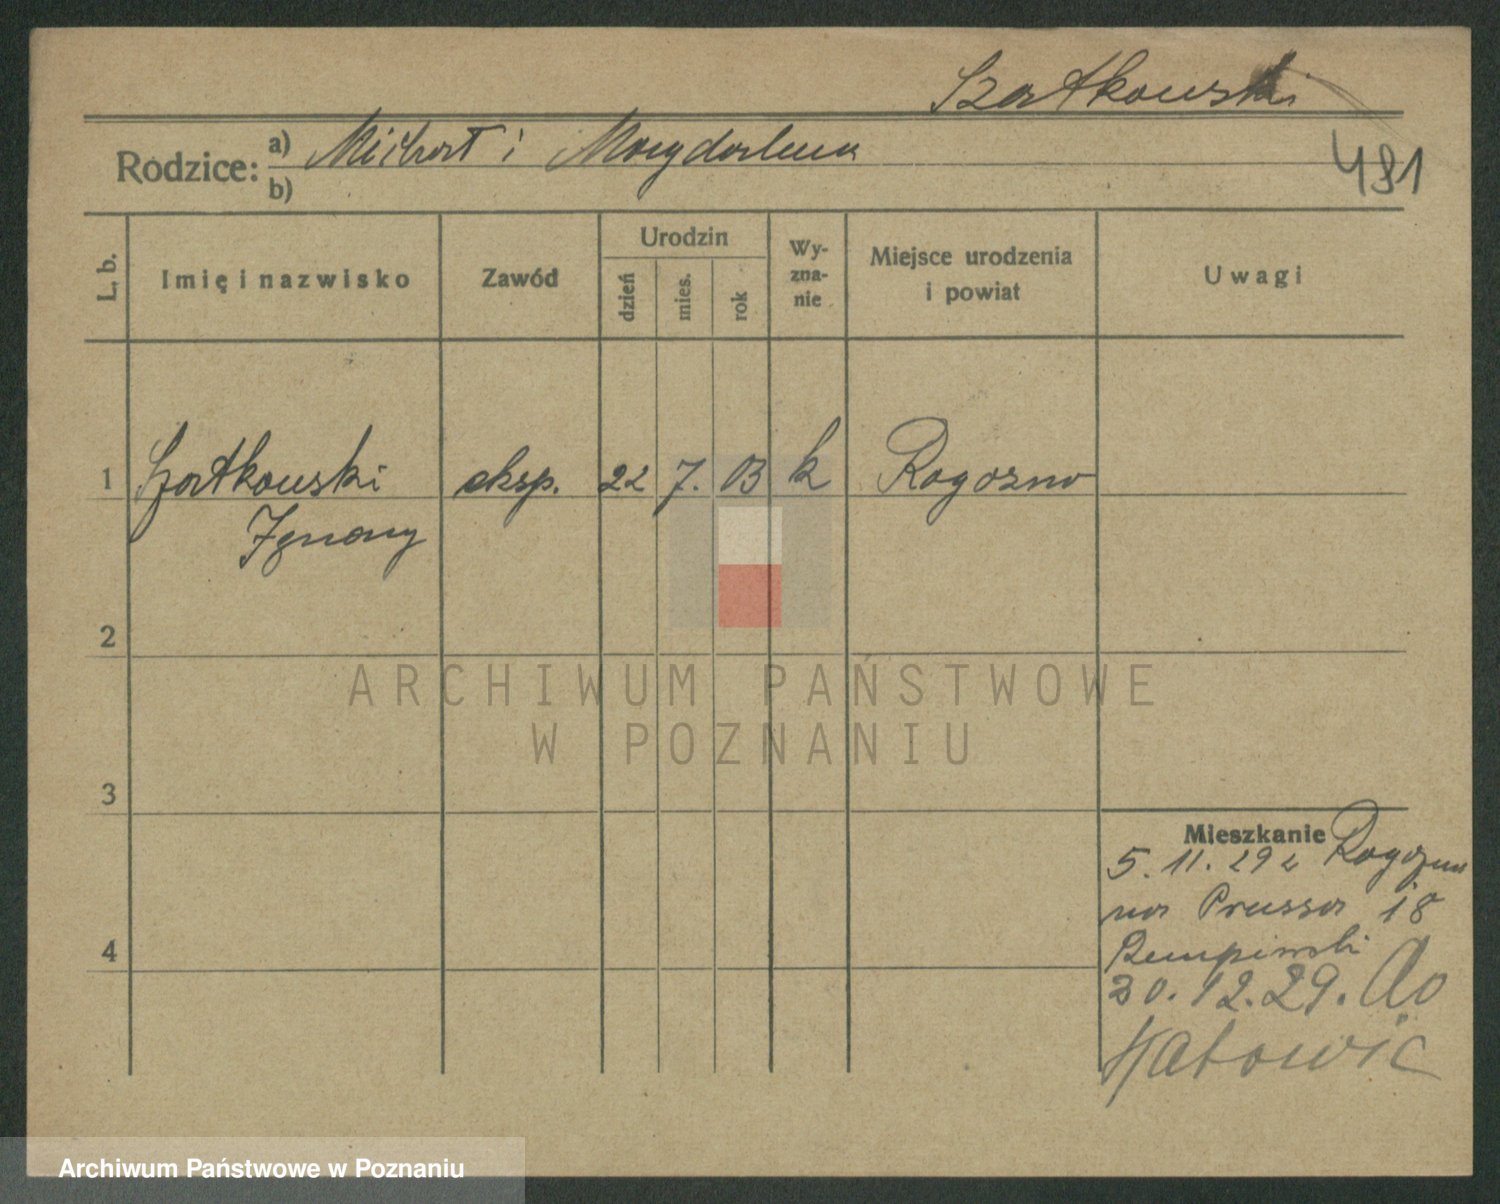 Szatkowski
Rodzice: a) Michał i Magdalena
b)
481
L. b.
Imię i nazwisko
Zawód
Urodzin
dzień
mies.
rok
Wy-
zna-
nie
Miejsce urodzenia
i powiat
Uwagi
1 Szatkowski eksp. 22 7. 03 k Rogozno
Ignacy
2
3
4
Mieszkanie
5. 11. 29 z Rogozna
na Prussa 18
30. 12. 29. do
Katowic
ARCHIWUM PAŃSTWOWE
W POZNANIU
Archiwum Państwowe w Poznaniu